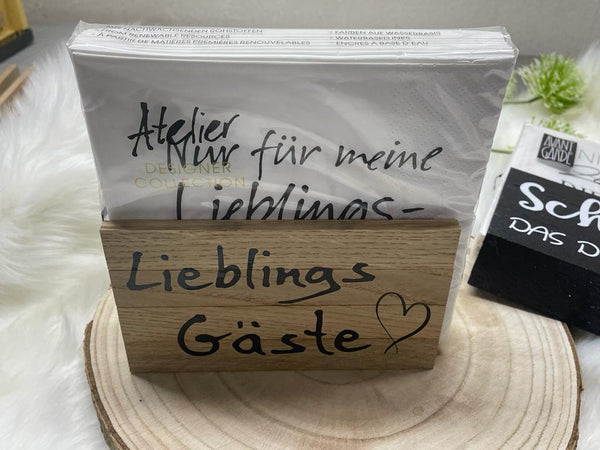 AUS NACHWACHSENDEN ROHSTOFFEN
FROM RENEWABLE RESOURCES
À PARTIR DE MATIÈRES PREMIÈRES RENOUVELABLES
FARBEN AUF WASSERBASIS
WATERBASED INKS
ENCRES À BASE D'EAU
Atelier
DESIGNER
COLLECTION
Nur für meine
Lieblings-
Lieblings
Gäste
AVANT
GARDE
DAS D